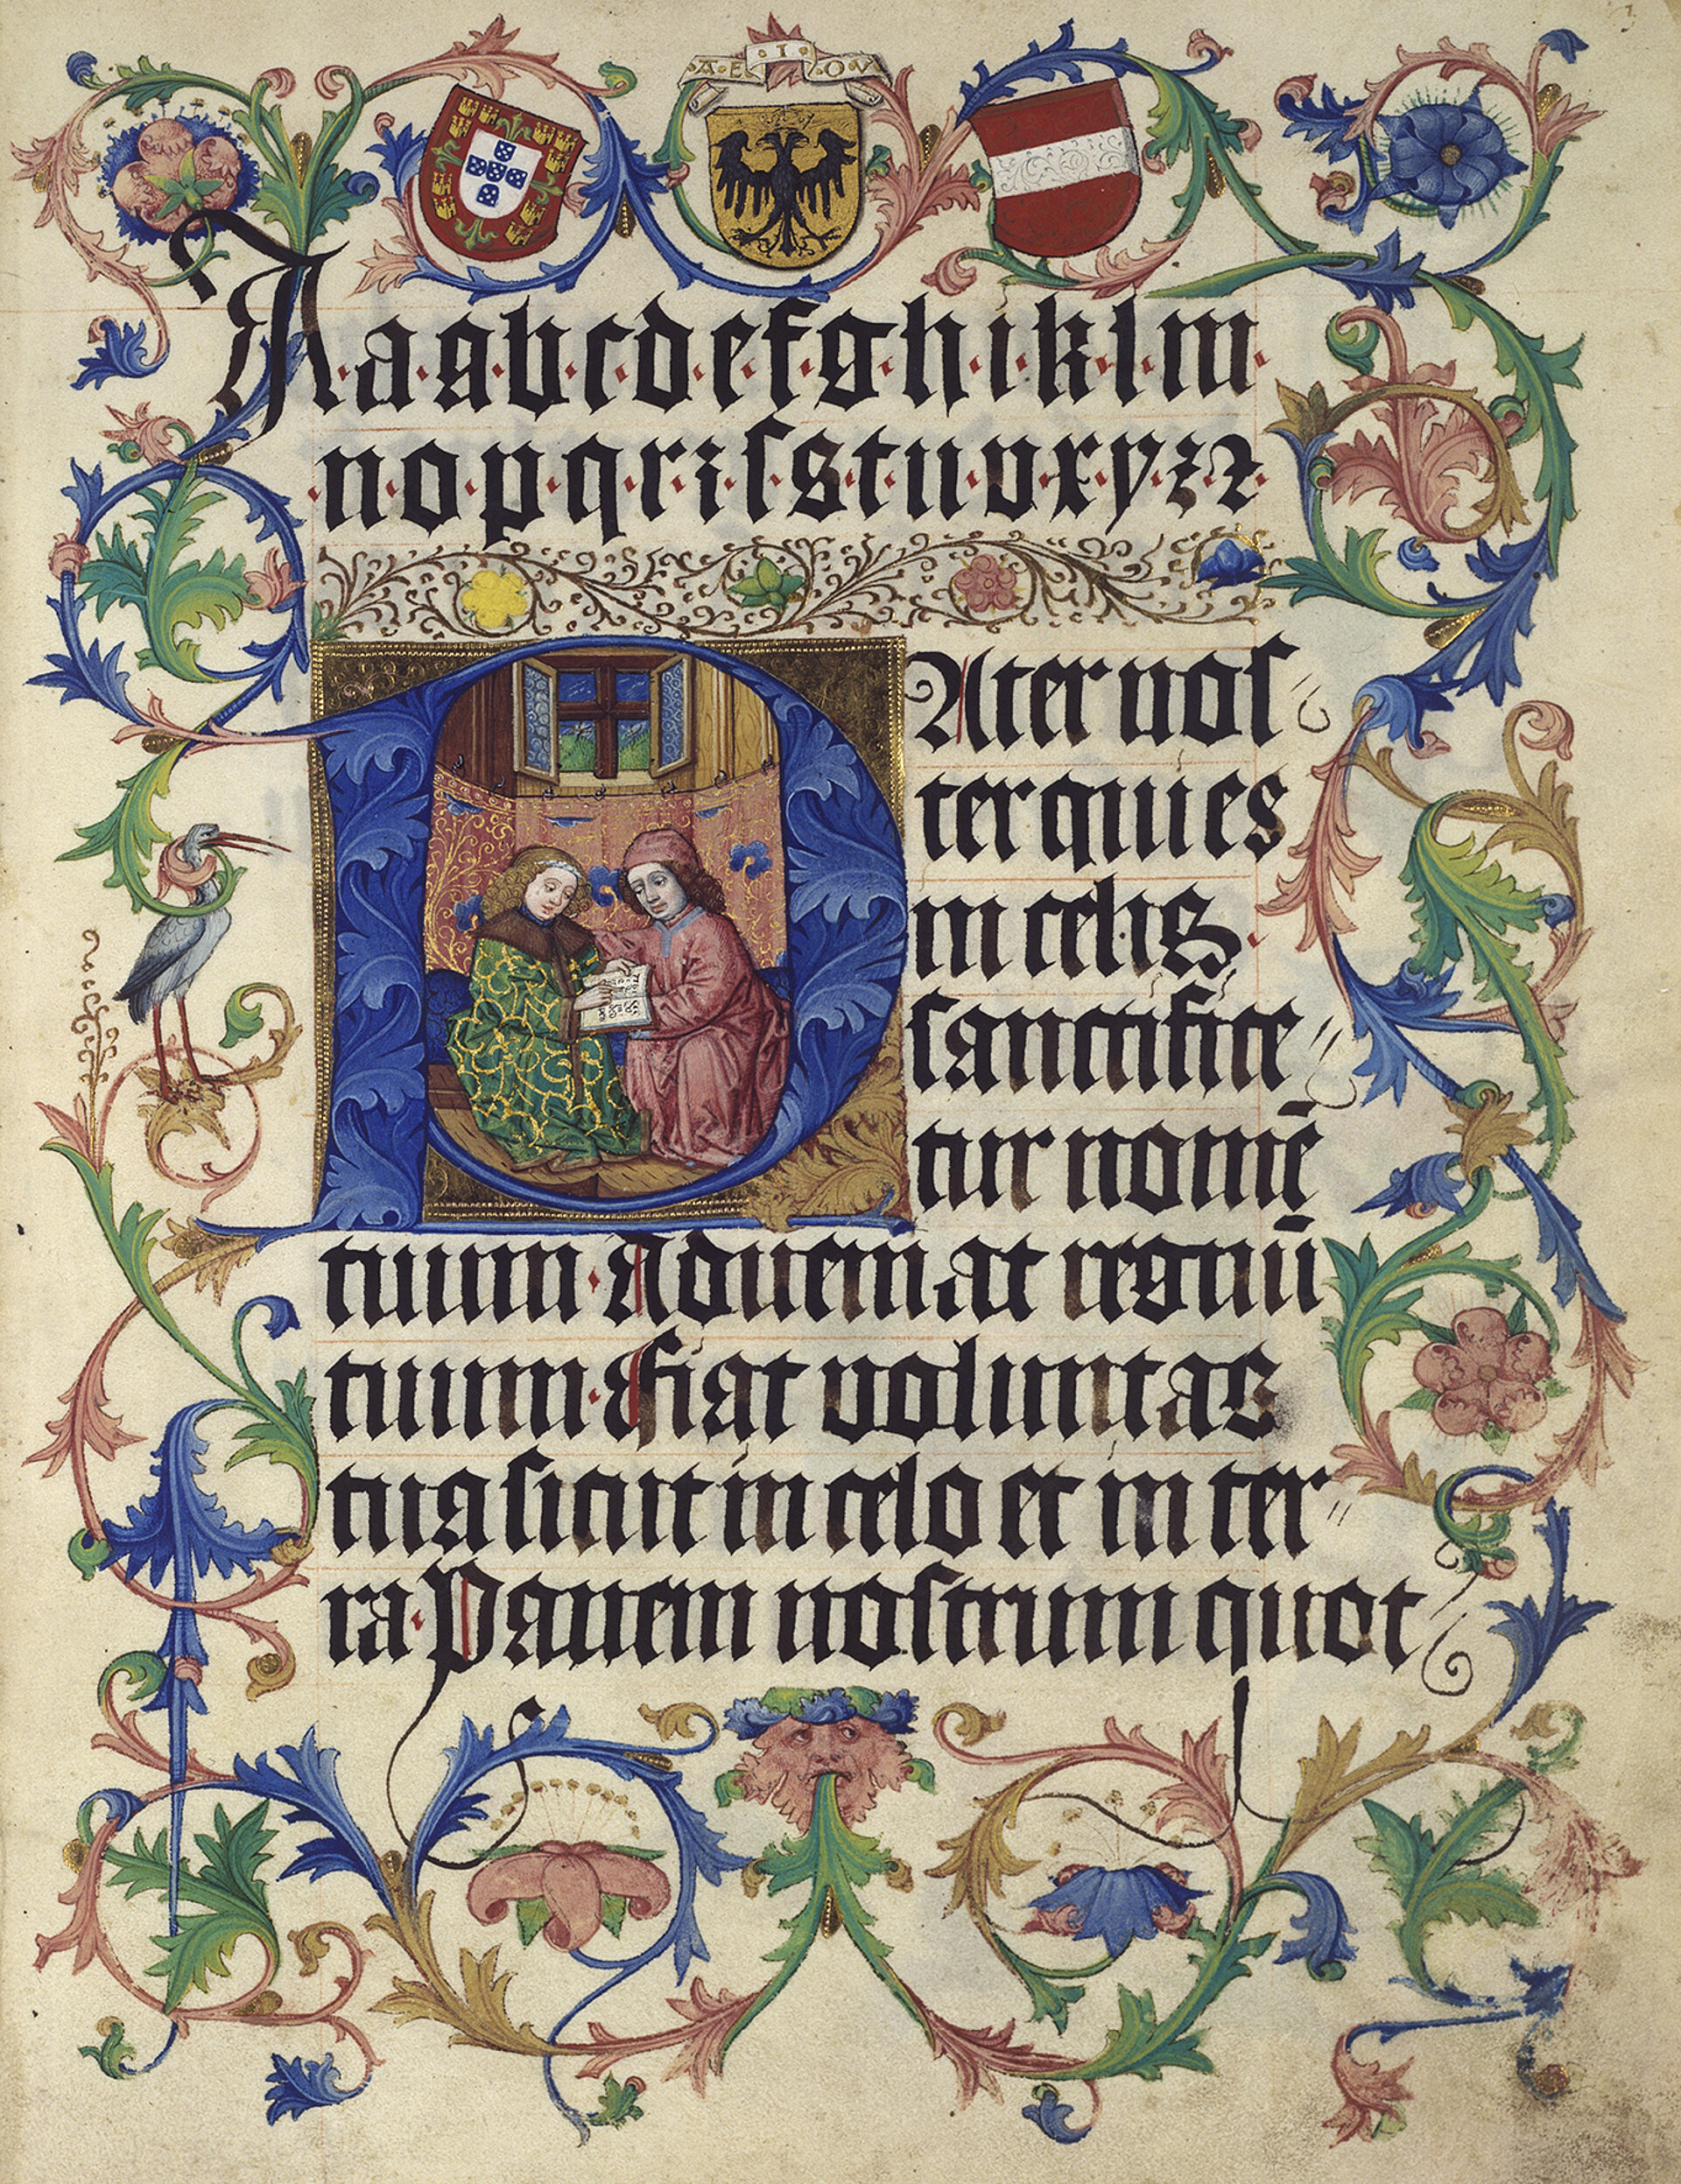 A·E·I·O·V
A·a·a·b·c·d·e·f·g·h·i·k·l·m·
·n·o·p·q·r·ꝛ·ſ·s·t·u·v·x·y·z·ꝛ·
PAter noſ
ter qui es
in celis.
ſanctifice
tur nomē
tuum. Adueniat regnū
tuum. fiat voluntas
tua ſicut in celo et in ter
ra. Panem noſtrum quot